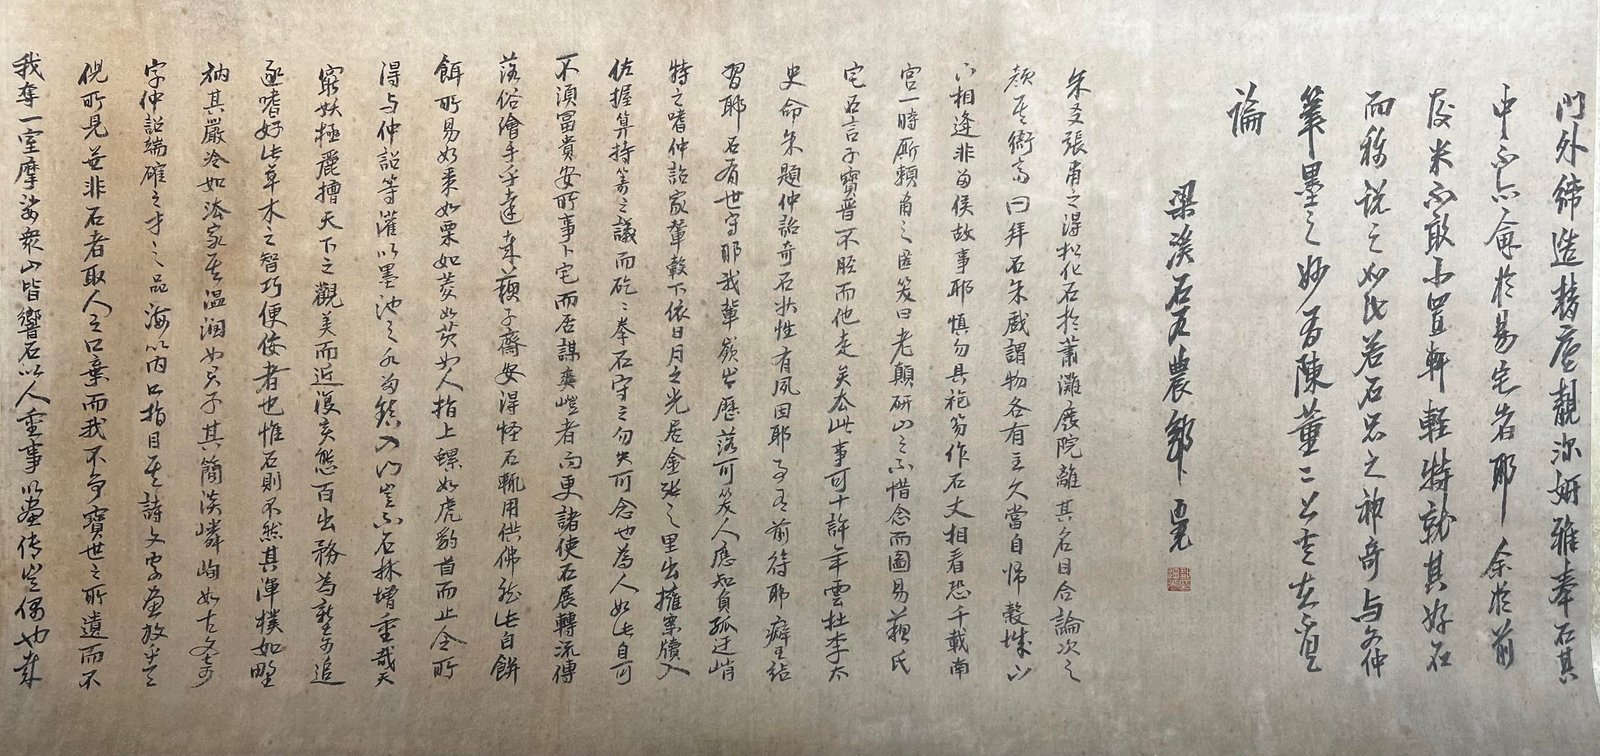 門外締造替㢈靚深妍雅奉石其
中不亦俞於易宅者耶余於前
度米不敢小置軒輊特就其好石
而稱說之如此若石丈之神奇与文仲
筆墨之妙有陳董二公言在豈
論
梁溪石農鄒迪光
朱及張甫之得松化石於蕭灘廢院離其名目合論次之
顏其銜而曰拜石朱戲謂物各有主久當自歸轂城山
下相逢非留侯故事耶慎勿具袍笏作石丈相看恐千載南
宮一時厮賴甫之匿笑曰老顛研山之不惜念而圖易蘇氏
宅石言子寶晉不脛而他走矣然此事可十許年雲杜李太
史命朱題仲詔奇石狀性有夙因耶予有前待耶癖王玷
習耶石有世守耶我輩嶔崎歷落可笑人應知負孤迂峭
特之嗜仲詔家輦轂下依日月之光居金張之里出擁案牘入
佐握算持籌之議而矻々拳石守之勿失可念也為人如此自可
不須富貴安所事卜宅而否謀爽塏者而更諸使石展轉流傳
落俗繪手乎達來蘓子齋安淂怪石輒用供佛能此自餅
餌所易如棗如栗如菱如芡如人指上螺如虎豹首而止令所
得与仲詔等灌以墨池之水為鎮入門豈不石林增重哉天
窮妖極麗擅天下之觀美而近復哀態百出務為新奇追
逐嗜好此草木之智巧便佞者也惟石則不然其渾樸如野
衲其嚴冷如法家其温潤如君子其簡淡嶙峋如古文奇
字仲詔端確之才之品海以內口指目其詩文字畫放乎其
倪所見無非石者取人之口棄而我不争寶世之所遺而不
我奪一室摩娑衆山皆響石以人重事以畫傳豈偶也哉